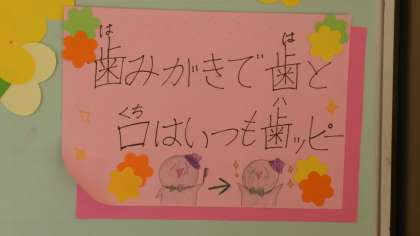 は は
歯みがきで歯と
くち ハ
口はいつも歯ッピー